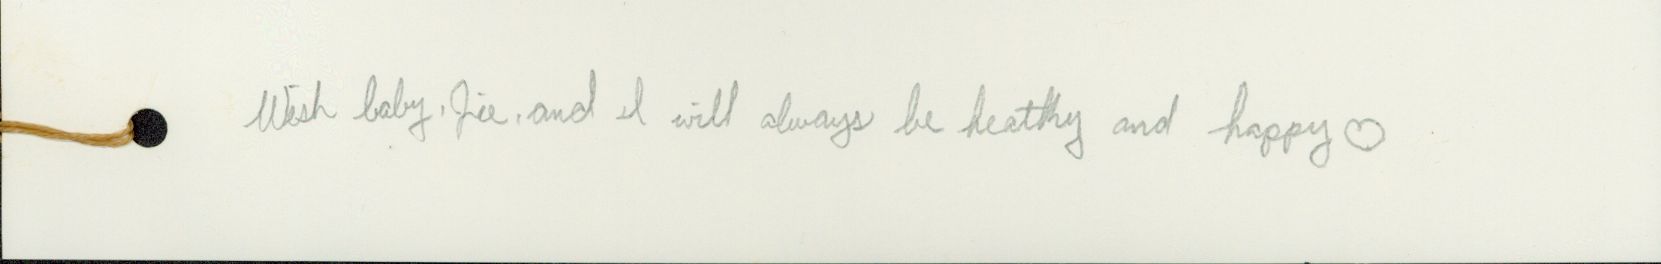 Wish baby, Jie, and I will always be heathy and happy ♡